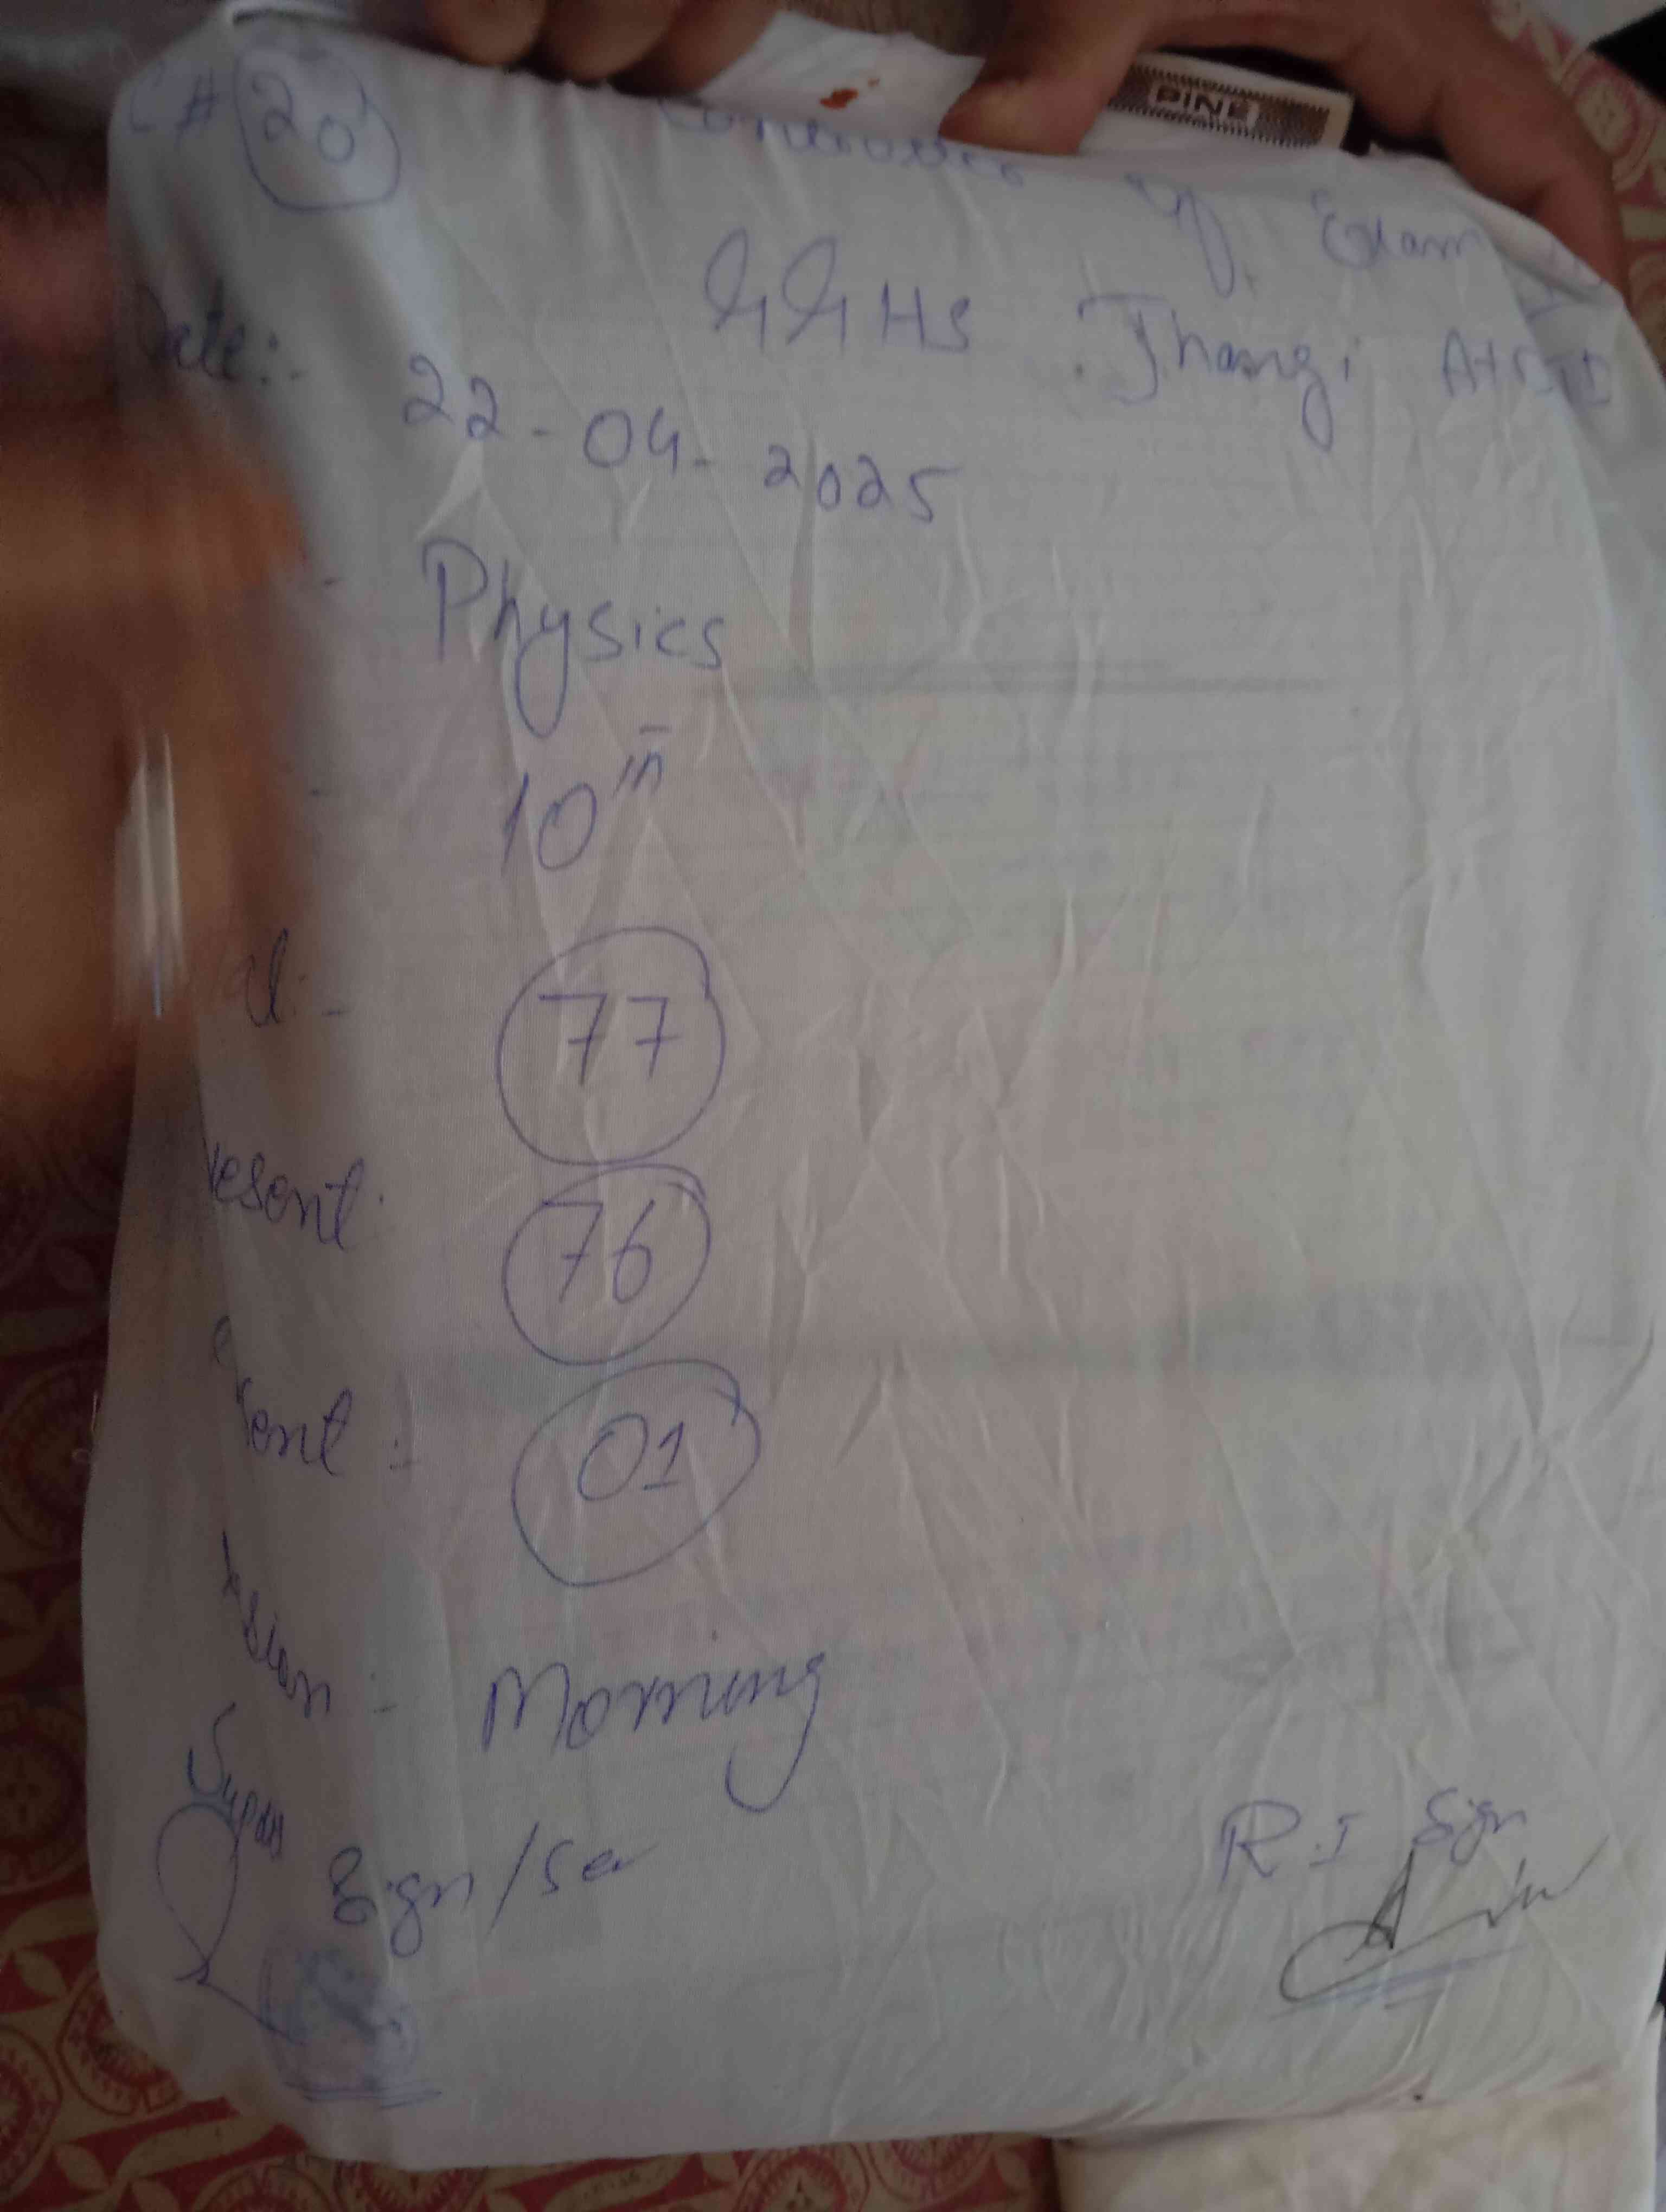 C# 20
PINE
Controller of Exam
GGHS Jhangi ATD
Date:- 22-04-2025
- Physics
- 10th
al:- 77
resent 76
sent :- 01
ssion :- Morning
Supdt
Sign/Seal
R.I Sign